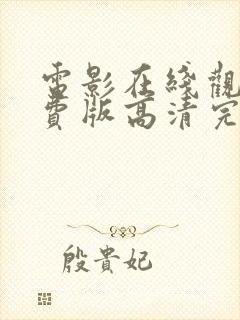 電影在綫觀
費版高清完
殷貴妃